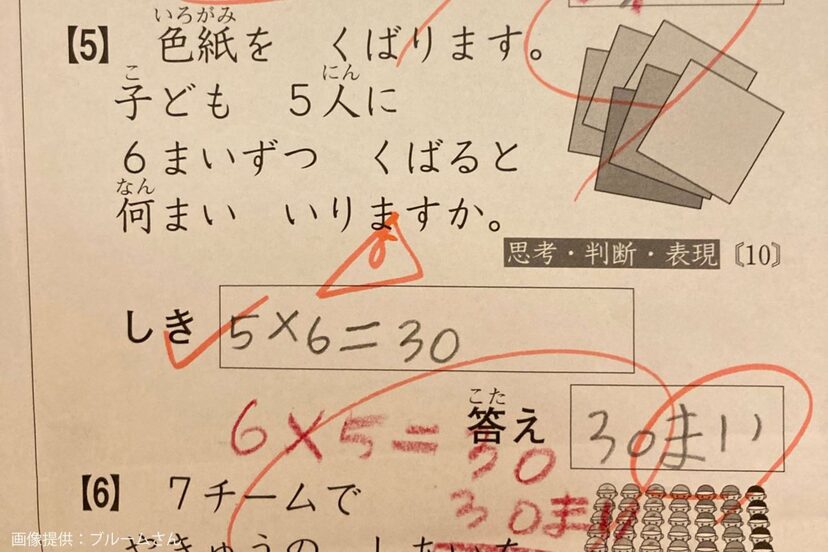 【5】 色紙を くばります。
いろがみ
子ども 5人に
こ にん
6まいずつ くばると
何まい いりますか。
なん
思考・判断・表現〔10〕
しき 5×6=30
6×5=30
答え 30まい
こた
30まい
【6】 7チームで
画像提供：ブルームさん